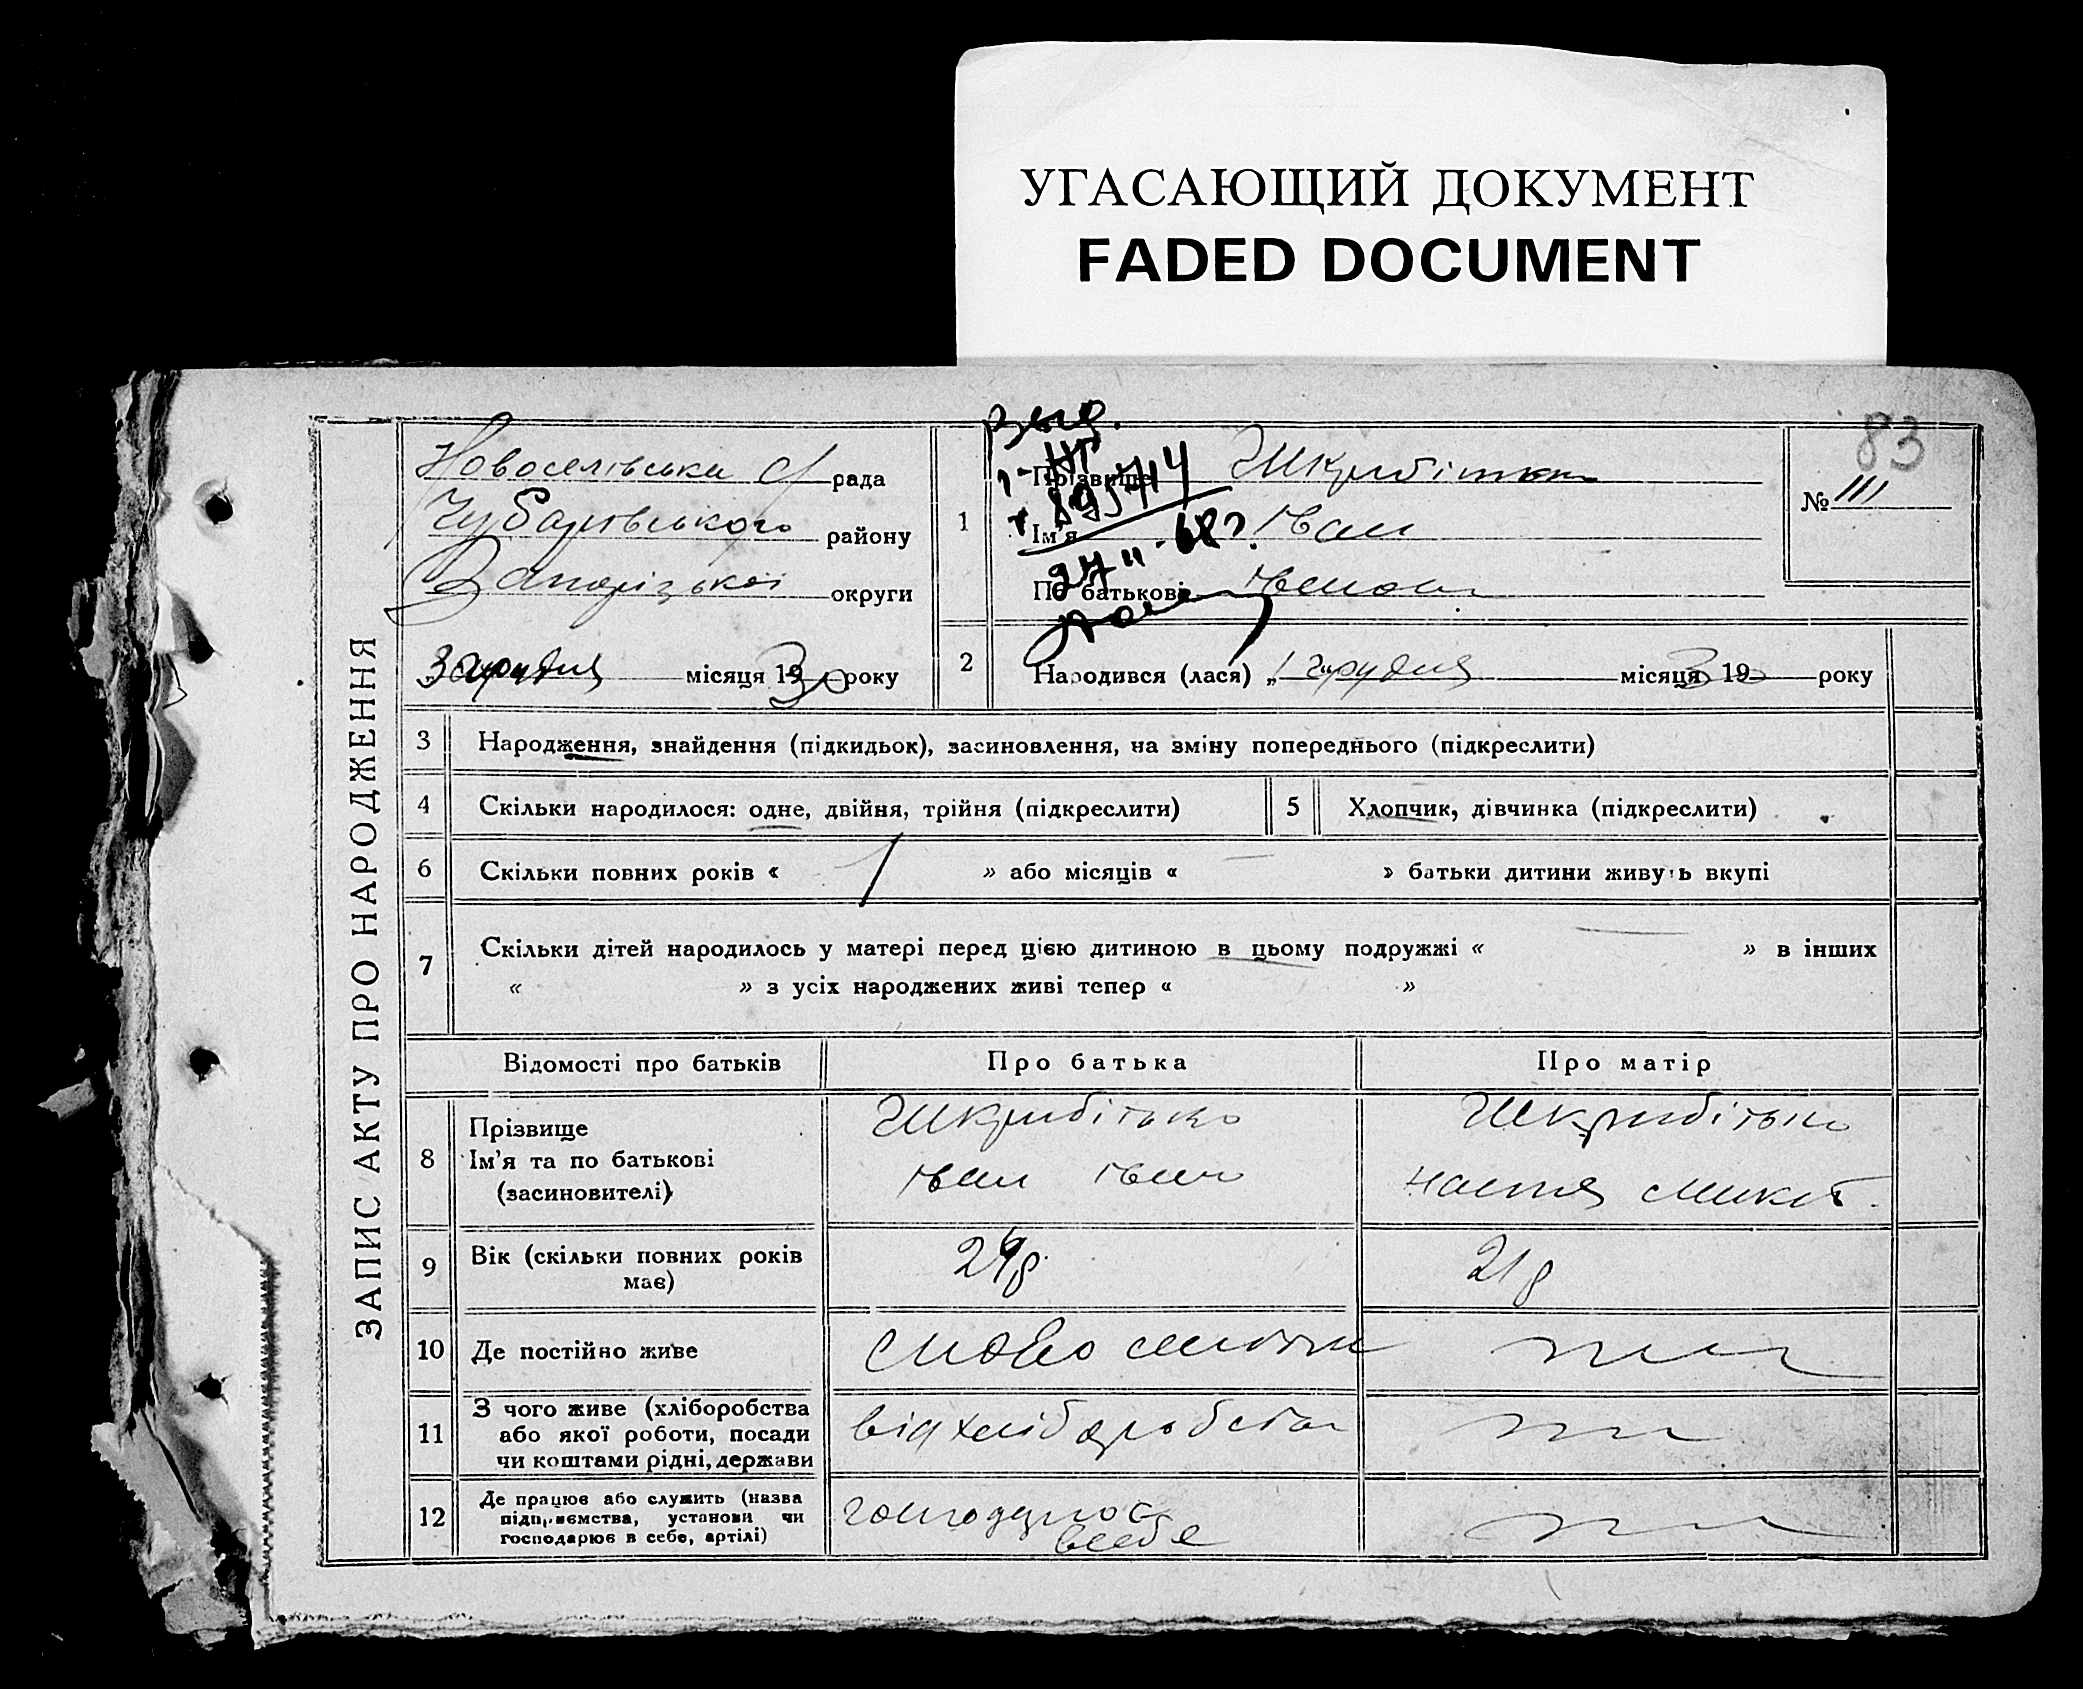 УГАСАЮЩИЙ ДОКУМЕНТ
FADED DOCUMENT
83
ЗАПИС АКТУ ПРО НАРОДЖЕННЯ
Новоселівська с/рада
Чубарівського району
Запорізької округи
3 грудня місяця 1930 року
1
Прізвище Шкрибітько
Ім'я Іван
По батькові Іванов
№ 111
895714
27 II - 68 г.
2 Народився (лася) „1" грудня місяця 1930 року
3 Народження, знайдення (підкидьок), засиновлення, на зміну попереднього (підкреслити)
4 Скільки народилося: одне, двійня, трійня (підкреслити) 5 Хлопчик, дівчинка (підкреслити)
6 Скільки повних років « 1 » або місяців « — » батьки дитини живуть вкупі
7 Скільки дітей народилось у матері перед цією дитиною в цьому подружжі « — » в інших
« » з усіх народжених живі тепер « »
Відомості про батьків Про батька Про матір
8 Прізвище Шкрибітько Шкрибітько
Ім'я та по батькові Іван Іван Настя Микит.
(засиновителі)
9 Вік (скільки повних років має) 24 р 21 р
10 Де постійно живе
11 З чого живе (хліборобства
або якої роботи, посади
чи коштами рідні, держави від хліборобства
12 Де працює або служить (назва
підприємства, установи чи
господарює в себе, артілі) господарює
в себе